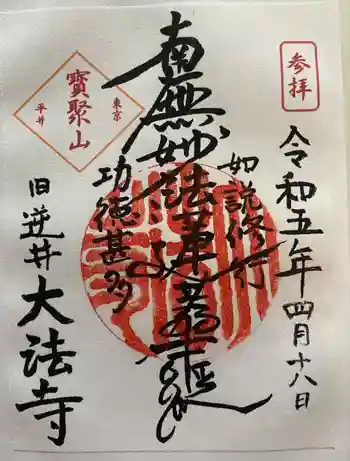 参拝
令和五年四月十八日
如説修行
南無妙法蓮華経
功徳甚多
東京
寳聚山
平井
旧逆井
大法寺